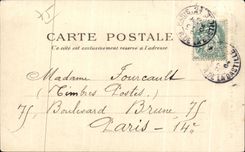 CARTE POSTALE
Ce côté est exclusivement réservé à l'adresse
Madame Fourcault
(Timbres Postes)
75 Boulevard Brune 75
Paris - 14e